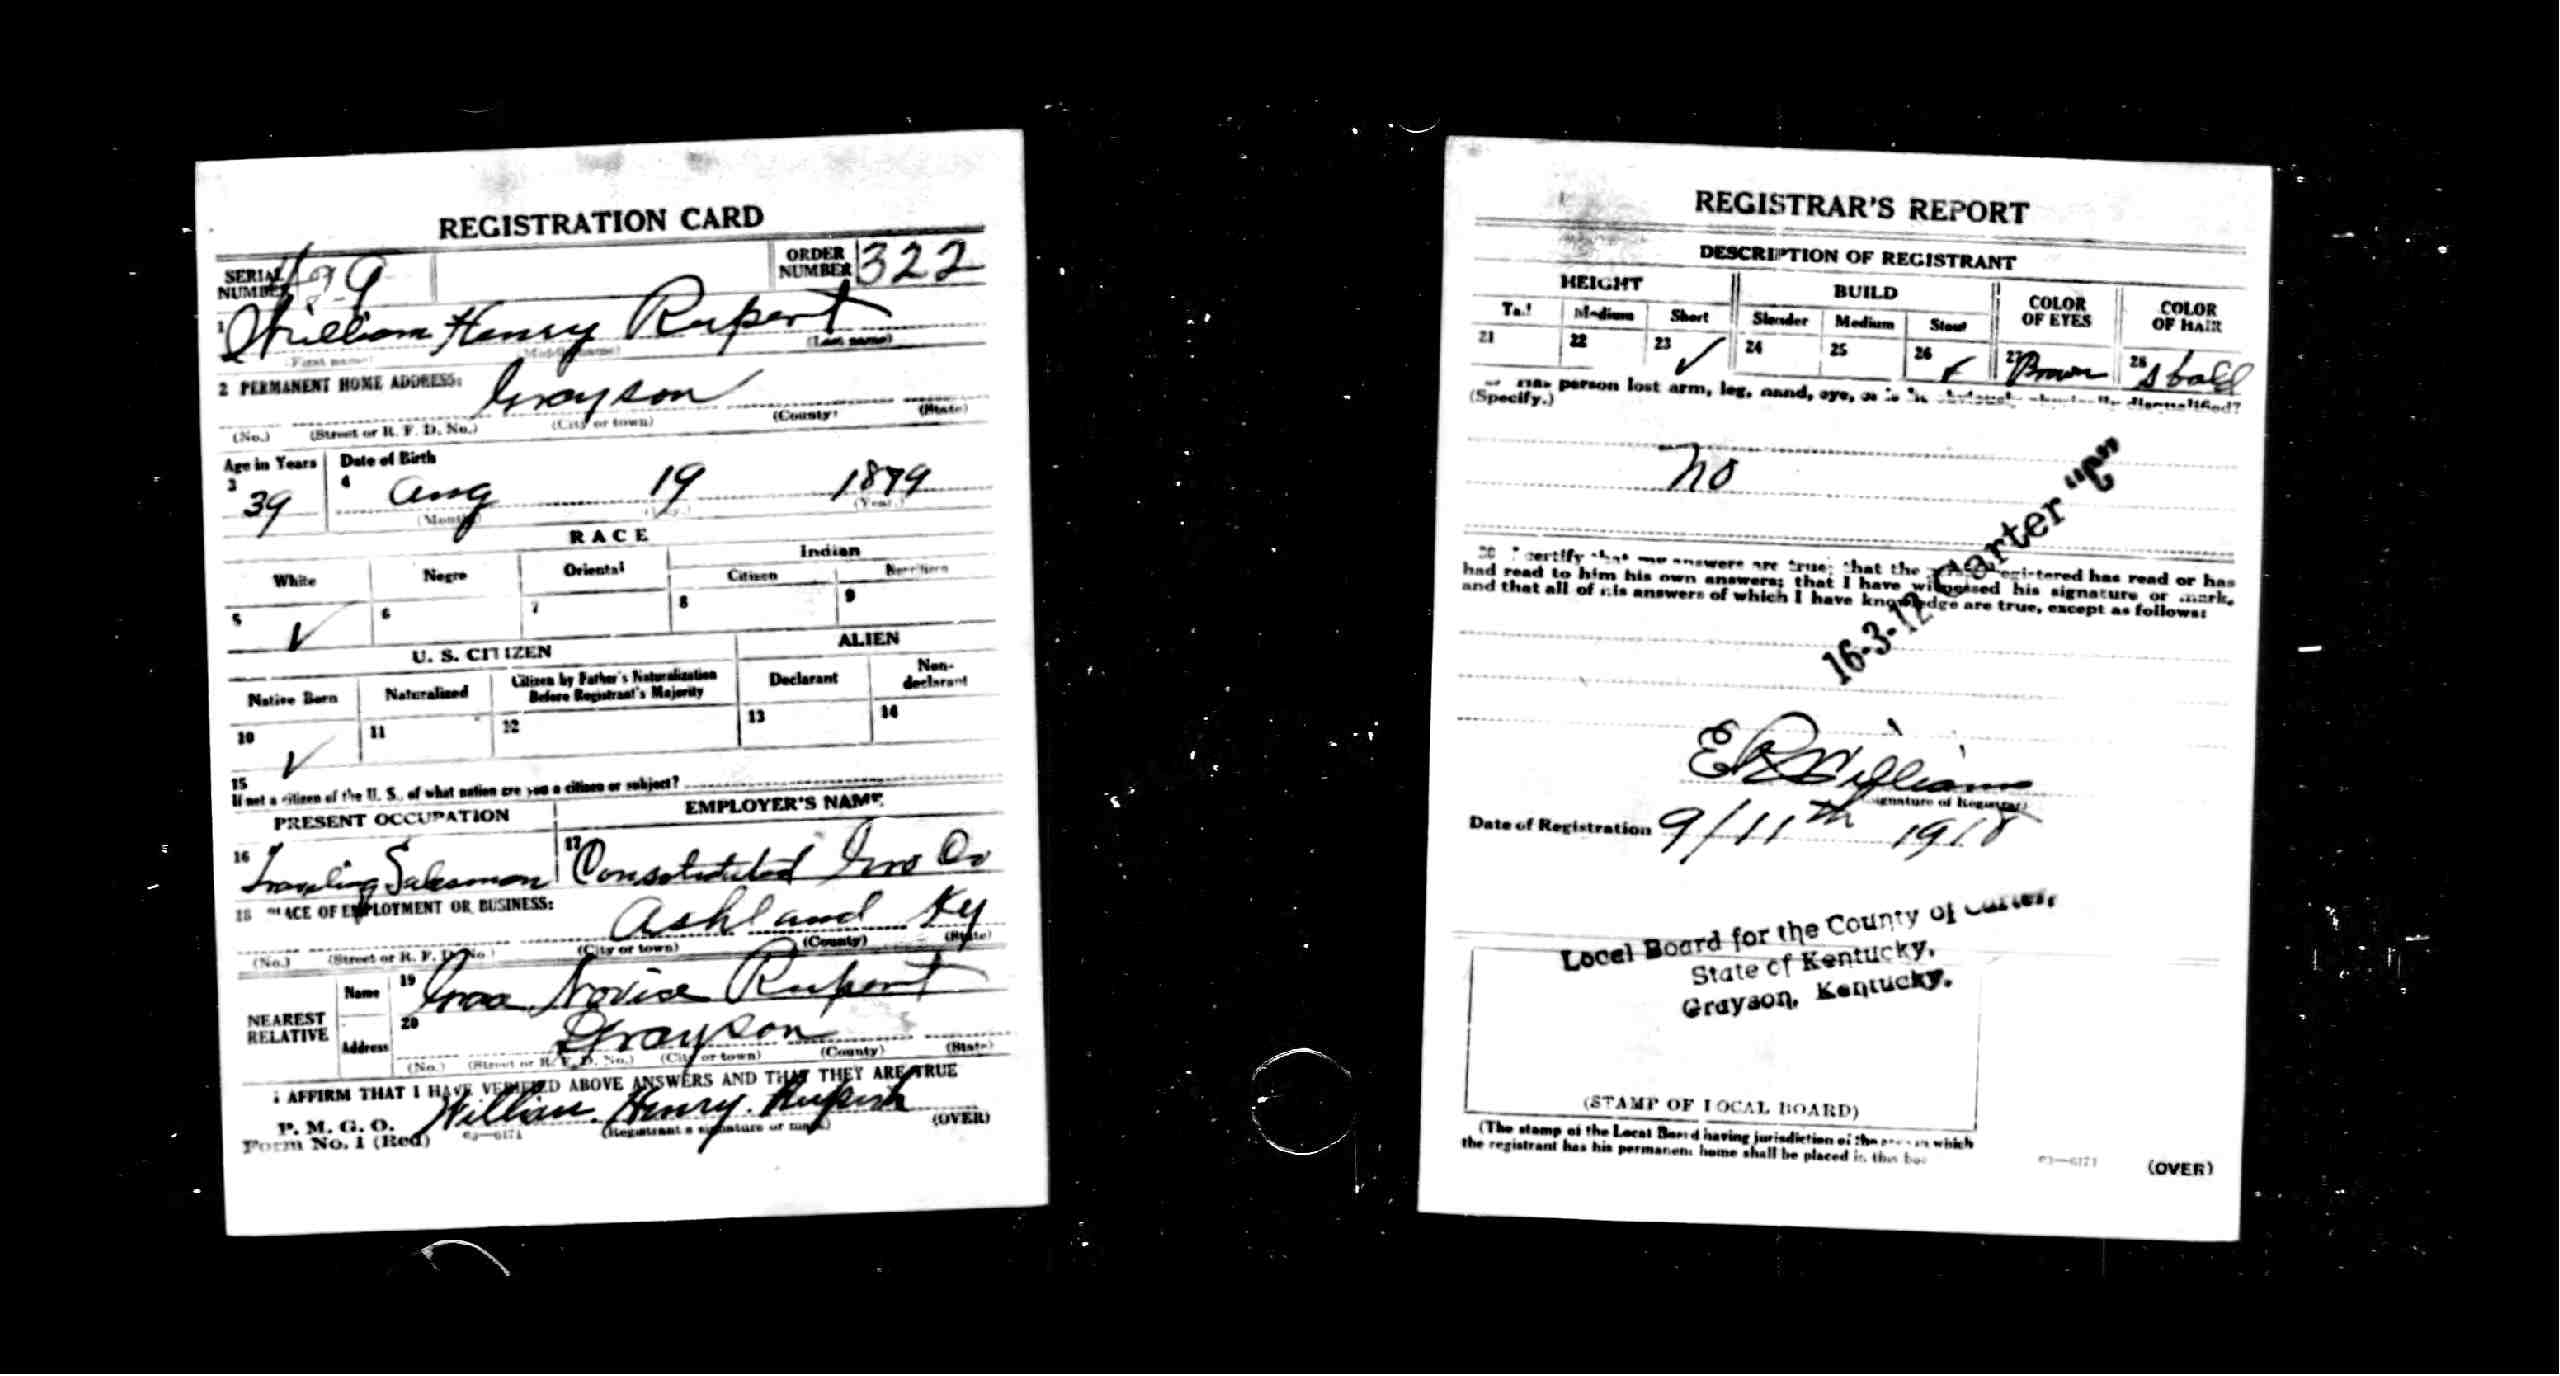 REGISTRATION CARD
SERIAL NUMBER 429 ORDER NUMBER 322
1 William Henry Rupert
(First name) (Middle name) (Last name)
2 PERMANENT HOME ADDRESS: Grayson
(No.) (Street or R. F. D. No.) (City or town) (County) (State)
Age in Years Date of Birth
3 39 4 Aug 19 1879
(Month) (Day.) (Year.)
RACE
White Negro Oriental Indian
Citizen
5 ✓ 6 7 8 9
U. S. CITIZEN ALIEN
Native Born Naturalized Citizen by Father's Naturalization Before Registrant's Majority Declarant Non-declarant
10 ✓ 11 12 13 14
15
If not a citizen of the U. S., of what nation are you a citizen or subject?
PRESENT OCCUPATION EMPLOYER'S NAME
16 Traveling Salesman 17 Consolidated Gro Co
18 PLACE OF EMPLOYMENT OR BUSINESS:
Ashland Ky
(No.) (Street or R. F. D. No.) (City or town) (County) (State)
NEAREST RELATIVE
Name 19 Rupert
Address 20 Grayson
(No.) (Street or R. F. D. No.) (City or town) (County) (State)
I AFFIRM THAT I HAVE VERIFIED ABOVE ANSWERS AND THAT THEY ARE TRUE
P. M. G. O.
Form No. 1 (Red) 03—6171 William Henry Rupert
(Registrant's signature or mark) (OVER)
REGISTRAR'S REPORT
DESCRIPTION OF REGISTRANT
HEIGHT BUILD COLOR OF EYES COLOR OF HAIR
Tall Medium Short Slender Medium Stout
21 22 23 ✓ 24 25 26 ✓ 27 Brown 28 bald
Has person lost arm, leg, hand, eye, or is he obviously physically disqualified?
(Specify.)
No
30 I certify that my answers are true; that the person registered has read or has
had read to him his own answers; that I have witnessed his signature or mark,
and that all of his answers of which I have knowledge are true, except as follows:
16-3-12 Carter "C"
E R Williams
(Signature of Registrar)
Date of Registration 9/11th 1918
Local Board for the County of Carter,
State of Kentucky,
Grayson, Kentucky.
(STAMP OF LOCAL BOARD)
(The stamp of the Local Board having jurisdiction of the area in which
the registrant has his permanent home shall be placed in this box
03—6171 (OVER)